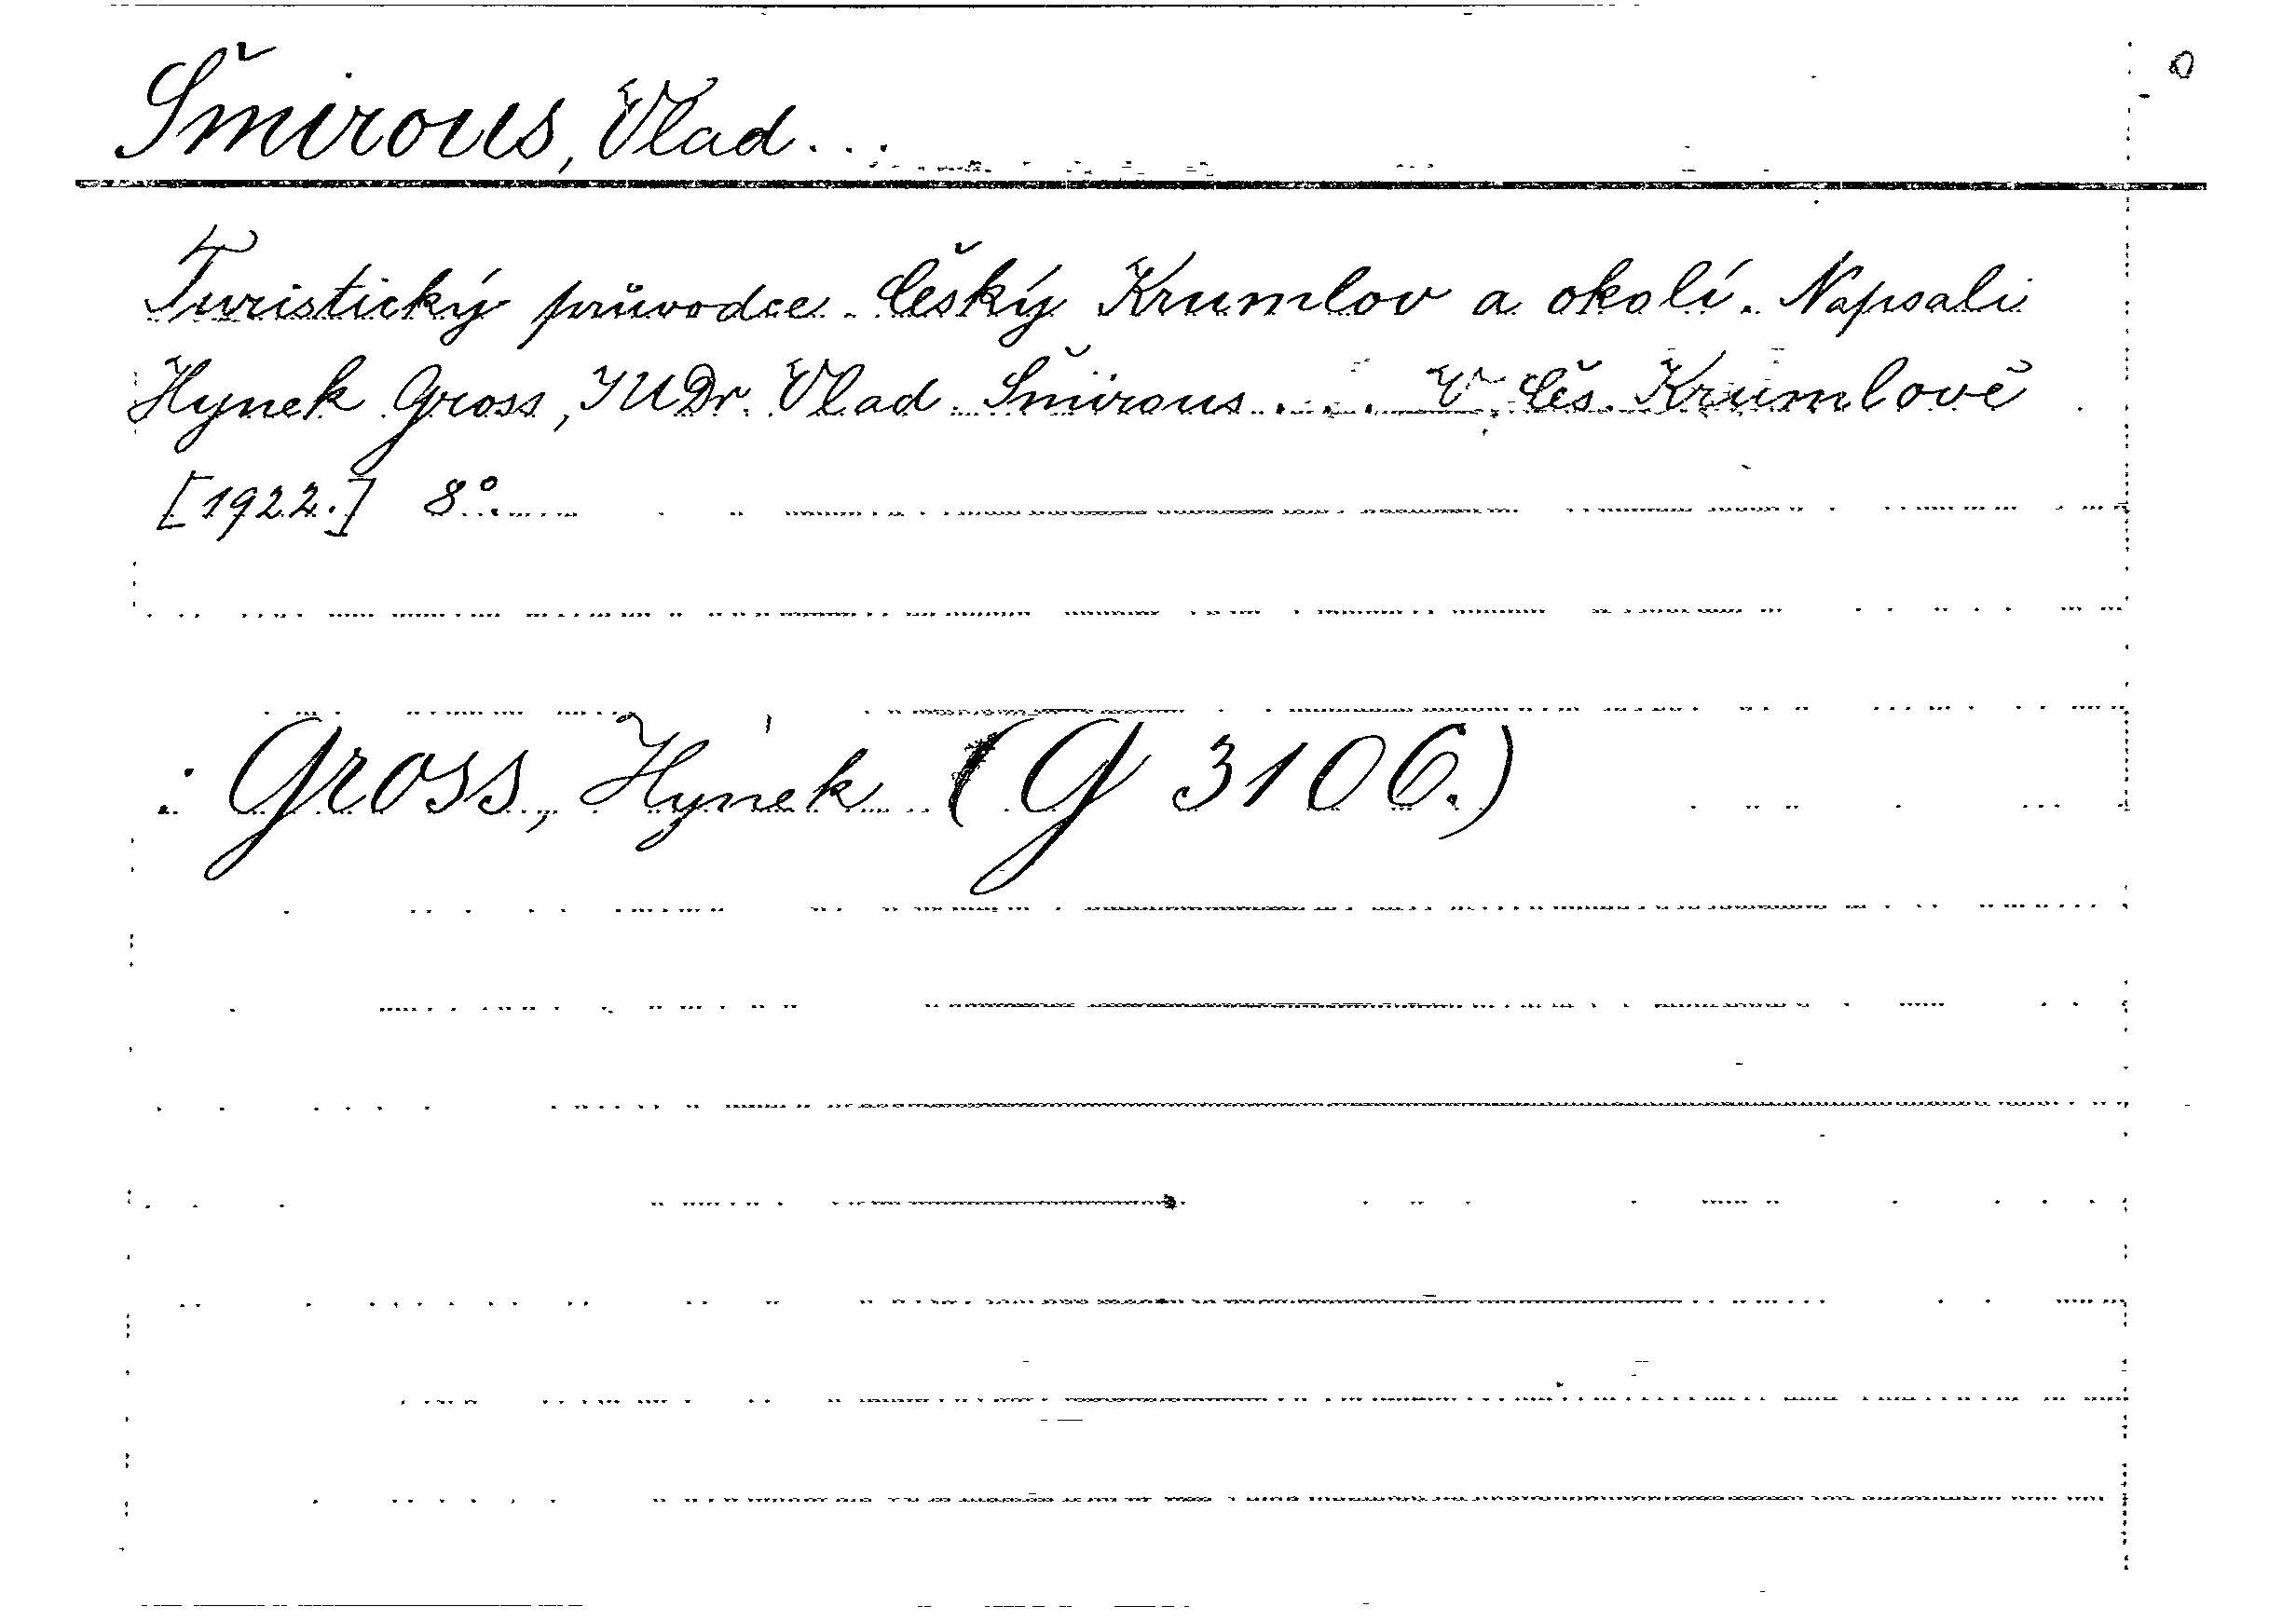 Šmirous, Vlad...
Turistický průvodce. Český Krumlov a okolí. Napsali
Hynek Gross, JUDr. Vlad Šmirous ... V Čes. Krumlově
[1922.] 8°.
: Gross, Hynek (G 3106.)